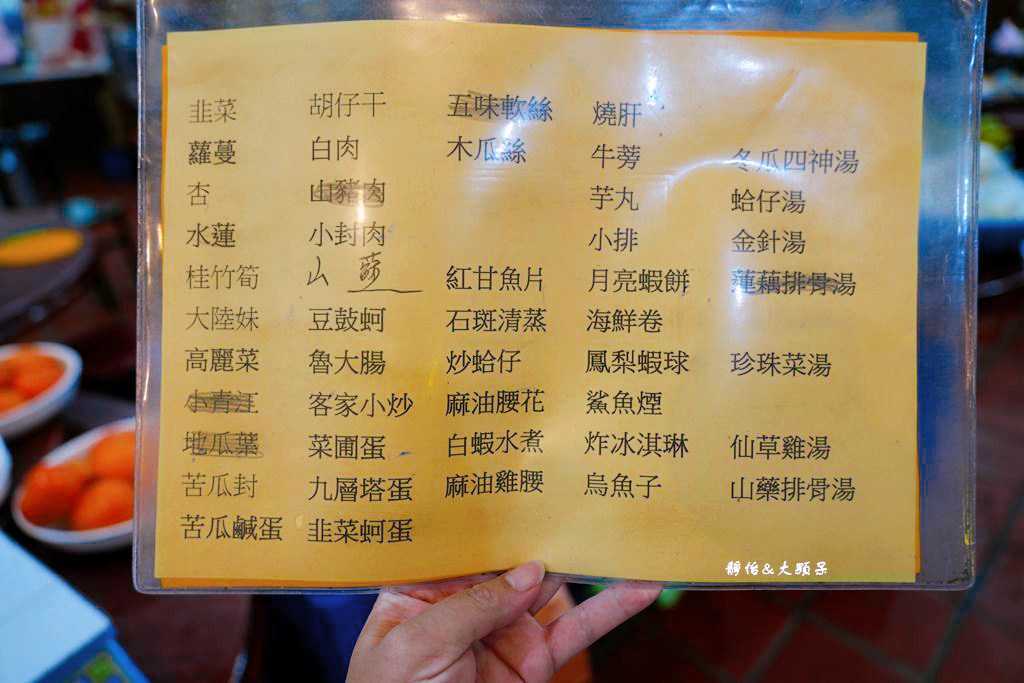 韭菜
蘿蔓
杏
水蓮
桂竹筍
大陸妹
高麗菜
小青江
地瓜葉
苦瓜封
苦瓜鹹蛋
胡仔干
白肉
山豬肉
小封肉
山
豆鼓蚵
魯大腸
客家小炒
菜圃蛋
九層塔蛋
韭菜蚵蛋
五味軟絲
木瓜絲
紅甘魚片
石斑清蒸
炒蛤仔
麻油腰花
白蝦水煮
麻油雞腰
燒肝
牛蒡
芋丸
小排
月亮蝦餅
海鮮卷
鳳梨蝦球
鯊魚煙
炸冰淇琳
烏魚子
冬瓜四神湯
蛤仔湯
金針湯
蓮藕排骨湯
珍珠菜湯
仙草雞湯
山藥排骨湯
靜怡&大顆呆